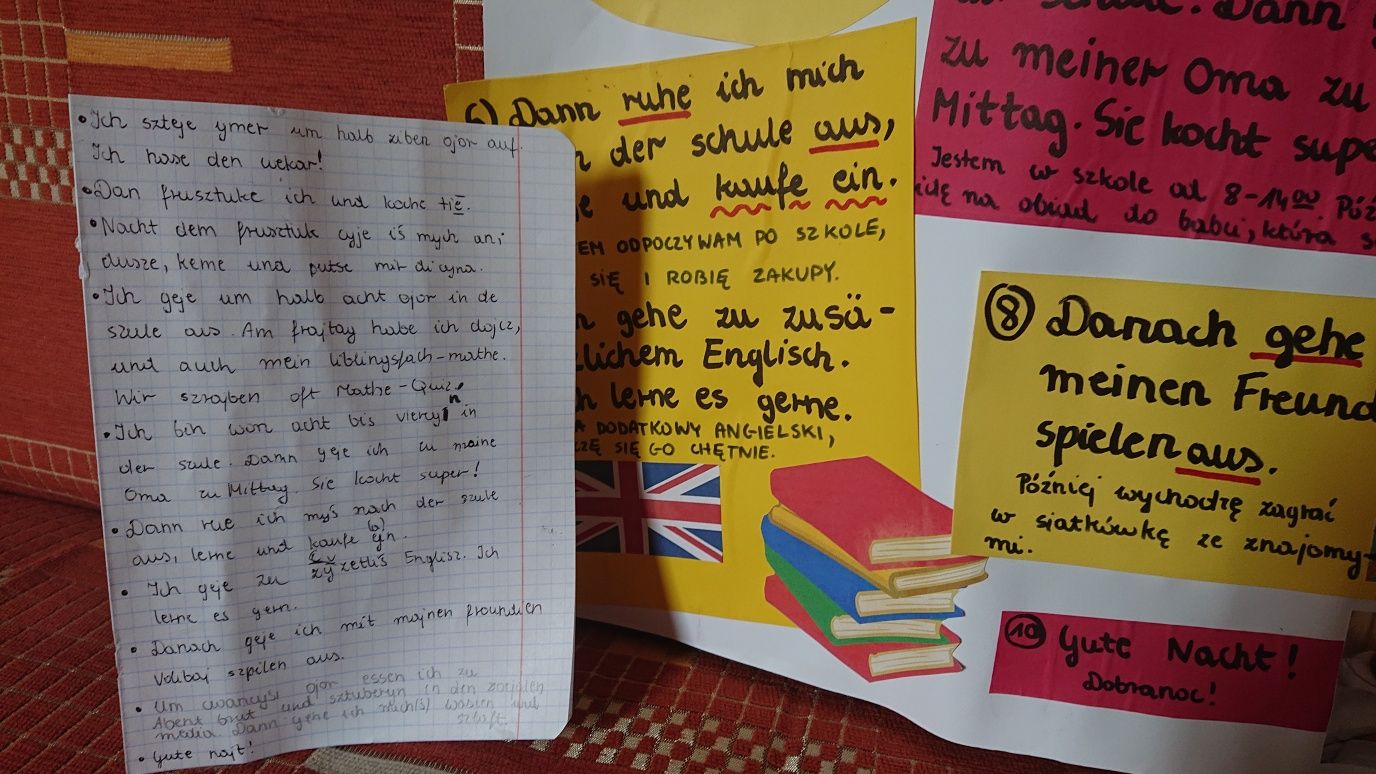 • Ich szteje ymer um halb ziben ojor auf.
Ich hase den wekar!
• Dan frusztuke ich und koche tië.
• Nacht dem frusztuk cyje iś mych an,
dusze, keme und putse mir di cyna.
• Ich geje um halb acht ojor in de
szule aus. Am frajtag habe ich dojcz,
und auch mein liblingsfach-mathe.
Wir szrajben oft Mathe-Quiz.
• Ich bin won acht bis viercyn in
der szule. Dann geje ich zu maine
Oma zu Mittag. Sie kocht super!
• Dann rue ich myś nach der szule
aus, lerne und kaufe ajn.
• Ich geje zu zyzetliś Englisz. Ich
lerne es gern.
• Danach geje ich mit majnen froundien
Volibaj szpilen aus.
• Um cwancyś ojor essen ich zu
Abent brut und sztuberyn in den zocjalen
media. Dann gehe ich mich(s) wasien und
szlaft.
• Gute najt!
6) Dann ruhe ich mich
der schule aus,
und kaufe ein.
ODPOCZYWAM PO SZKOLE,
SIĘ I ROBIĘ ZAKUPY.
gehe zu zusä-
zlichem Englisch.
lerne es gerne.
DODATKOWY ANGIELSKI,
SIĘ GO CHĘTNIE.
Dann
zu meiner Oma zu
Mittag. Sie kocht supe
Jestem w szkole od 8-14⁰⁰. Póź
idę na obiad do babci, która s
8 Danach gehe
meinen Freund
spielen aus.
Później wychodzę zagrać
w siatkówkę ze znajomy-
mi.
10 Gute Nacht!
Dobranoc!